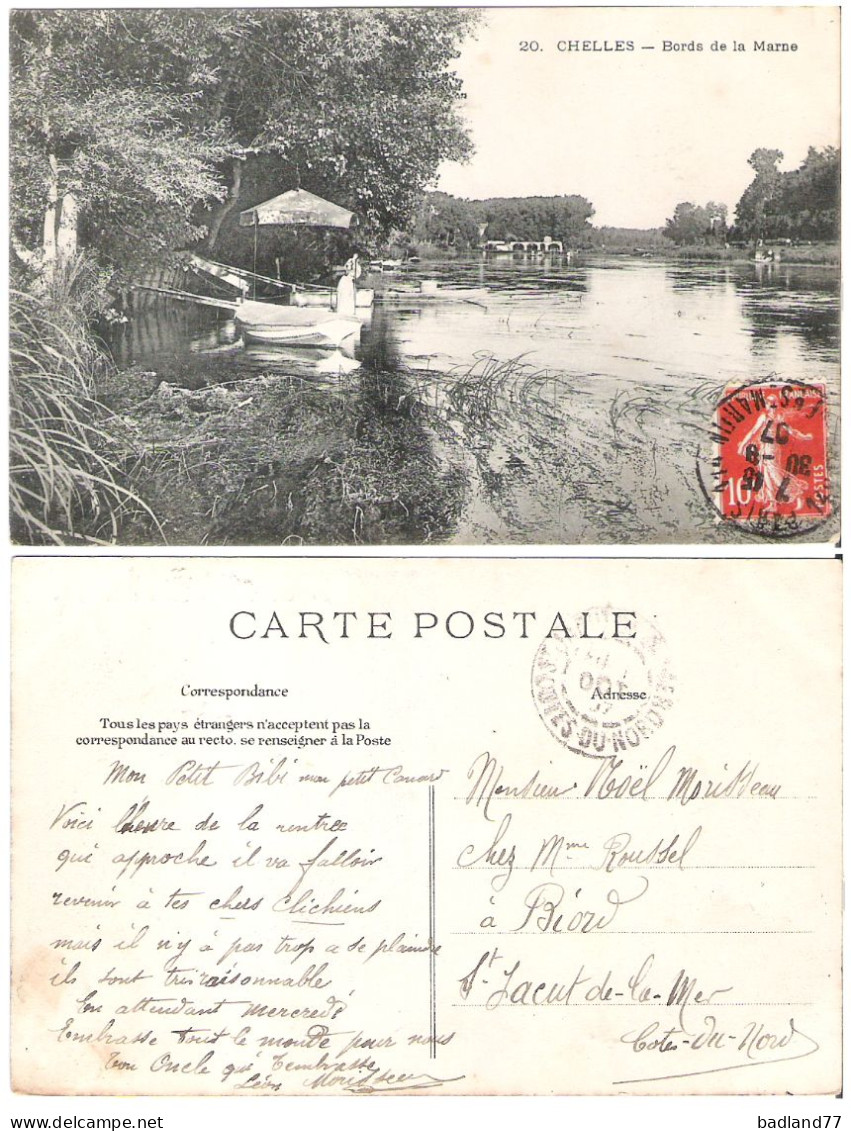 20. CHELLES — Bords de la Marne
10
POSTES
30 -9
07
CARTE POSTALE
Correspondance
Adresse
Tous les pays étrangers n'acceptent pas la
correspondance au recto. se renseigner à la Poste
CÔTES-DU-NORD
OCT
07
Mon Petit Bibi mon petit Canard
Voici l'heure de la rentrée
qui approche il va falloir
revenir à tes chers Clichiens
mais il n'y à pas trop a se plaindre
ils sont très raisonnable
En attendant mercredi
Embrasse tout le monde pour nous
Ton Oncle qui t'embrasse
Léon Morisseau
Monsieur Noël Morisseau
Chez Mme Roussel
à Biord
St Jacut de-la-Mer
Cotes-du-Nord
badland77
delcampe.net